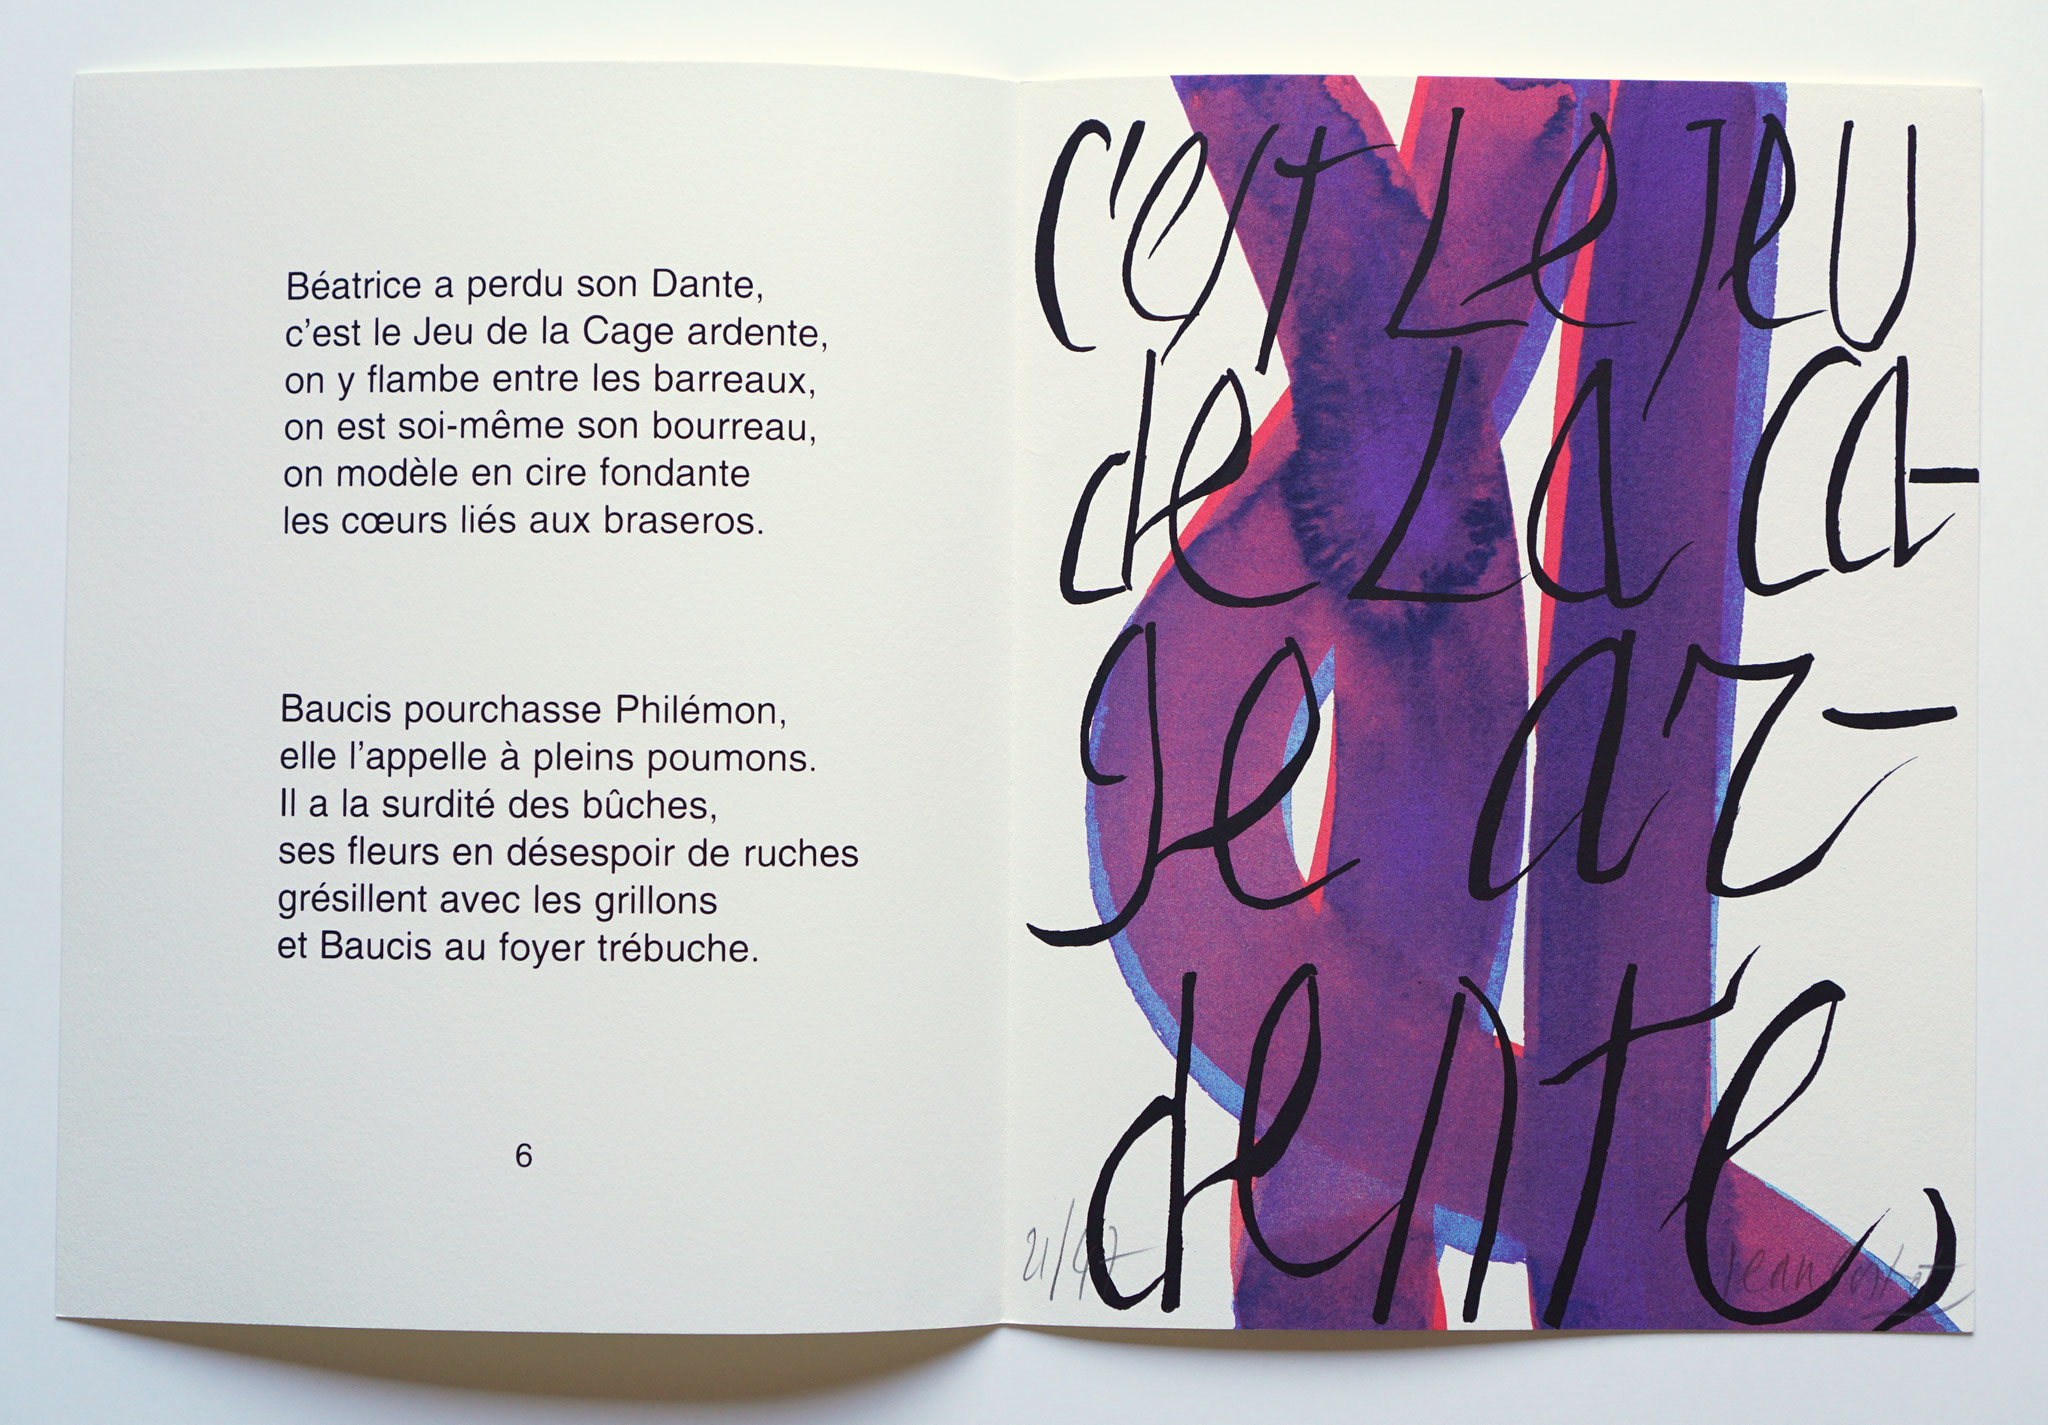 Béatrice a perdu son Dante,
c’est le Jeu de la Cage ardente,
on y flambe entre les barreaux,
on est soi-même son bourreau,
on modèle en cire fondante
les cœurs liés aux braseros.
Baucis pourchasse Philémon,
elle l’appelle à pleins poumons.
Il a la surdité des bûches,
ses fleurs en désespoir de ruches
grésillent avec les grillons
et Baucis au foyer trébuche.
6
c'est le jeu
de la ca-
ge ar-
dente,
21/47